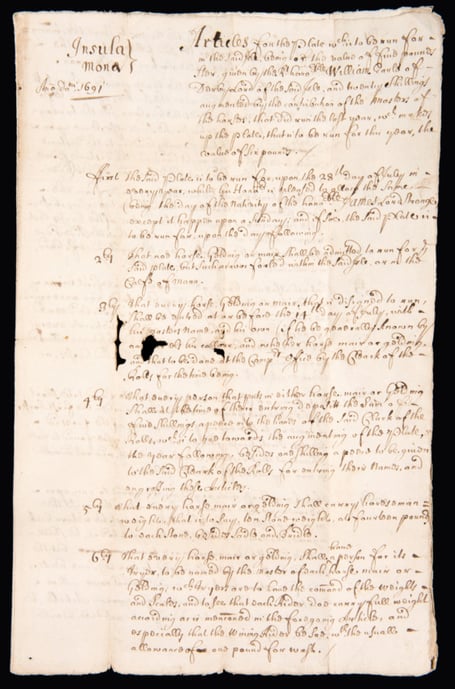 Insula
Monæ
Ano Do: 1691
Articles for the Plate wch is to be run for
in the said Isle, being of the value of five pounds
ster given by the Rt honoble William Earle of
Derby Lord of the said Isle, and twenty shillings
augmented by the contribution of the Masters of
the horses, that did run the last year, wch makes
up the plate, that is to be run for this year, the
value of six pounds.
first the said Plate is to be run for, upon the 28th day of July in
every year, while his is pleased to the same
being the day of the Nativity of the honoble James Lord Strange
except it happen upon a Sunday; and if soe, the said plate is
to be run for, upon the day following.
2ly That noe horse, Gelding or mair shall be admitted to run for ye
said plate, but such as was foaled within the said Isle, or in the
Calfe of Mann.
3ly That every horse, Gelding or mair, that is designed to run,
shall be entred at or before the day of July, with
his masters name and his own, if he be generally known by
his collour, and whether horse mair or gelding,
and that to be done at the office by the Clearke of the
Rolls for the time being.
4ly That every person that puts in either horse, mair or Gelding
shall at the time of their entring depositt the sum of
five shillings a peece into the hands of the said Clark of the
Rolls, wch is to goe towards the augmenting of the Plate,
the year following, besides one shilling a peece to be given
to the said Cleark of the Rolls for entring their Names, and
engrossing these Articles.
5ly That every horse, mair or gelding shall carry horseman
weight, that is to say, ten stone weight, att fourteen pound
to each stone, besides sadle and bridle.
6ly That every horse mair or gelding, shall have a person for its
tryer, to be named by the owner of each horse, mair or
gelding, wch tryers are to have the comand of the weights
and scales, and to see that each Rider doe carry full weight
according as is mentioned in the foregoing Article, and
especially that the wining Rider be soe, with the usuall
allowance of one pound for wast.